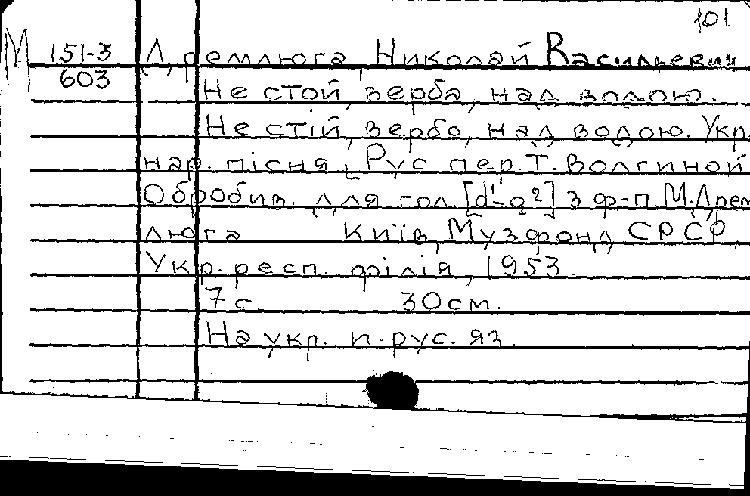 101
М 151-3 Дремлюга, Николай Васильевич
603
Не стой, верба, над водою.
Не стій, вербо, над водою. Укр.
нар. пісня, Рус. пер. Т. Волгиной
Обробив для гол. [d¹-g²] з ф-п М. Дрем-
люга Київ, Музфонд СРСР,
Укр. респ. філія, 1953.
7 с. 30 см.
На укр. и рус. яз.